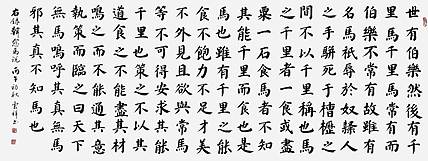 世有伯樂然後有千
里馬千里馬常有而
伯樂不常有故雖有
名馬祇辱於奴隸人
之手駢死于槽櫪之
間不以千里稱也馬
之千里者一食或盡
粟一石食馬者不知
其能千里而食也是
馬也雖有千里之能
食不飽力不足才美
不外見且欲與常馬
等不可得安求其能
千里也策之不以其
道食之不能盡其材
鳴之而不能通其意
執策而臨之曰天下
無馬嗚呼其真無馬
邪其真不知馬也
右錄韓愈馬說 丙午初秋